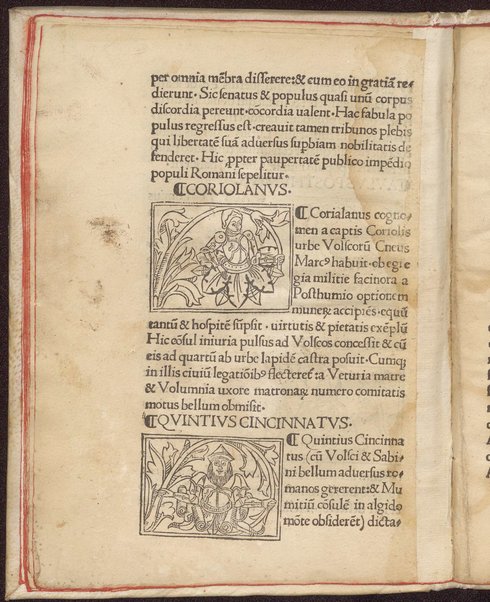 per omnia mēbra disserere:& eum eo in gratiā re-
dierunt. Sic senatus & populus quasi unū corpus
discordia pereunt. cōcordia ualent. Hac fabula po
pulus regressus est. creauit tamen tribunos plebis
qui libertatē suā aduersus supbiam nobilitatis de
fenderet. Hic ꝓpter paupertatē publico impēdio
populi Romani sepelitur.
¶CORIOLANVS.
¶Corialanus cogno-
men a captis Coriolis
urbe Volscorū Cneus
Marcꝰ habuit. ob egre
gia militie facinora a
Posthumio optionem
munerꝝ accipiēs. equū
tantū & hospitē sūpsit. uirtutis & pietatis exēplū
Hic cōsul iniuria pulsus ad Volscos concessit & cū
eis ad quartū ab urbe lapidē castra posuit. Cumqꝫ
in illis ciuiū legatiōibꝰ flecteret ita Veturia matre
& Volumnia uxore matronarꝝ numero comitatis
motus bellum obmisit.
¶QVINTIVS CINCINNATVS.
¶Quintius Cincinna
tus (cū Volsci & Sabi-
ni bellum aduersus ro-
manos gererent:& Mu
mitiū cōsulē in algido
mōte obsiderēt) dicta-